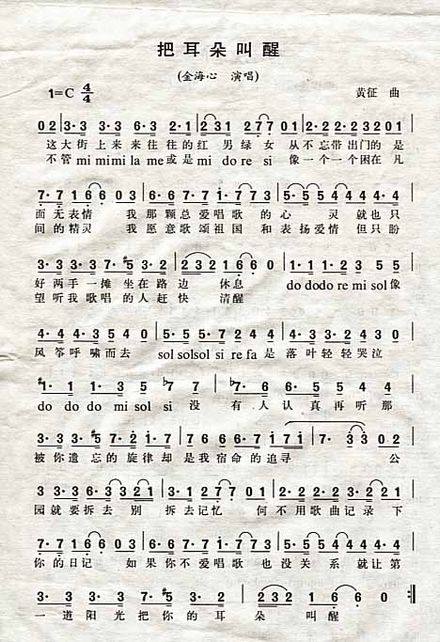 把耳朵叫醒
(金海心 演唱)
1=C 4/4
黄征 曲
0 2 | 3· 3 3· 3 3· 3 2· 1 | 2 3 1 2 7 7 0 1 | 2· 2 2· 2 3 2 0 1 |
这大街上来来往往的红男绿女 从不忘带出门的是
不管mi mi mi la me或是mi do re si 像一个一个困在凡
7· 7 1 6 6 0 3 | 6· 6 7· 6 1· 7 7 3 | 5· 5 5 4 4 4· 4 |
面无表情 我那颗总爱唱歌的心灵就也只
间的精灵 我愿意歌颂祖国和表扬爱情但只盼
3· 3 3· 3 7· #5 3· 2 | 2 3 2 1 6 6 0 | 1· 1 1· 2 3 5 5 |
好两手一摊坐在路边休息 do do do re mi sol像
望听我歌唱的人赶快清醒
4· 4 4· 3 5 0 | 5· 5 5· 7 2 4 4 | 4· 3 2· 4 3 0 |
风筝呼啸而去 sol sol sol si re fa是落叶轻轻哭泣
#1· 1 1· 3 5 ♭7 7 | ♭7· 6 6· 5 5· 4 4· 2 |
do do do mi sol si 没有人认真再听那
3· 3 3· #5 7· 2 1· 7 | 7 6 6 6· 6 7· 1 7 1 | 7· 3 3 0 2 |
被你遗忘的旋律却是我宿命的追寻 公
3· 3 3· 3 3 2 1 | 2· 3 1· 2 7 0 1 | 2· 2 2· 2 3· 2 2 1 |
园就要拆去别拆去记忆 何不用歌曲记录下
7· 7 1 6 6 0 3 | 6· 6 7· 6 1· 7 7 3 | 5· 5 5 4 4 4· 4 |
你的日记 如果你不爱唱歌也没关系就让第
3· 3 3· 3 7· #5 3· 2 | 2 3 2 1 6 6 0 :||
一道阳光把你的耳朵叫醒